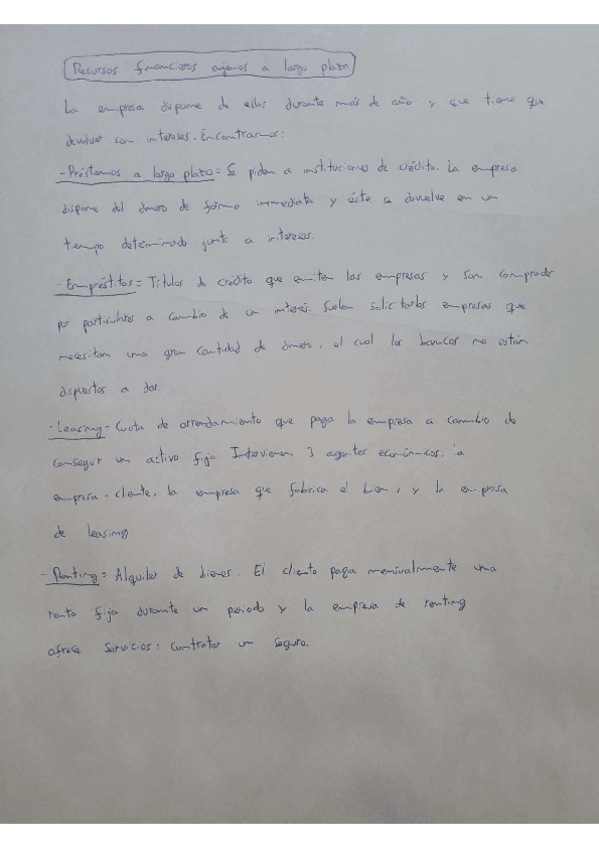 Recursos financieros ajenos a largo plazo
La empresa dispone de ellos durante más de año y que tiene que
devolver con intereses. Encontramos:
-Préstamos a largo plazo= Se piden a instituciones de crédito. La empresa
dispone del dinero de forma immediata y éste se devuelve en un
tiempo determinado junto a intereses.
-Empréstitos= Títulos de crédito que emiten las empresas y son comprados
por particulares a cambio de un interés. Suelen solicitarlos empresas que
necesitan una gran cantidad de dinero, el cual los bancos no están
dispuestos a dar.
-Leasing= Cuota de arrendamiento que paga la empresa a cambio de
conseguir un activo fijo Intervienen 3 agentes económicos: la
empresa-cliente, la empresa que fabrica el bien, y la empresa
de leasing
-Renting= Alquiler de bienes. El cliente paga mensualmente una
renta fija durante un periodo y la empresa de renting
ofrece servicios: contratar un seguro.